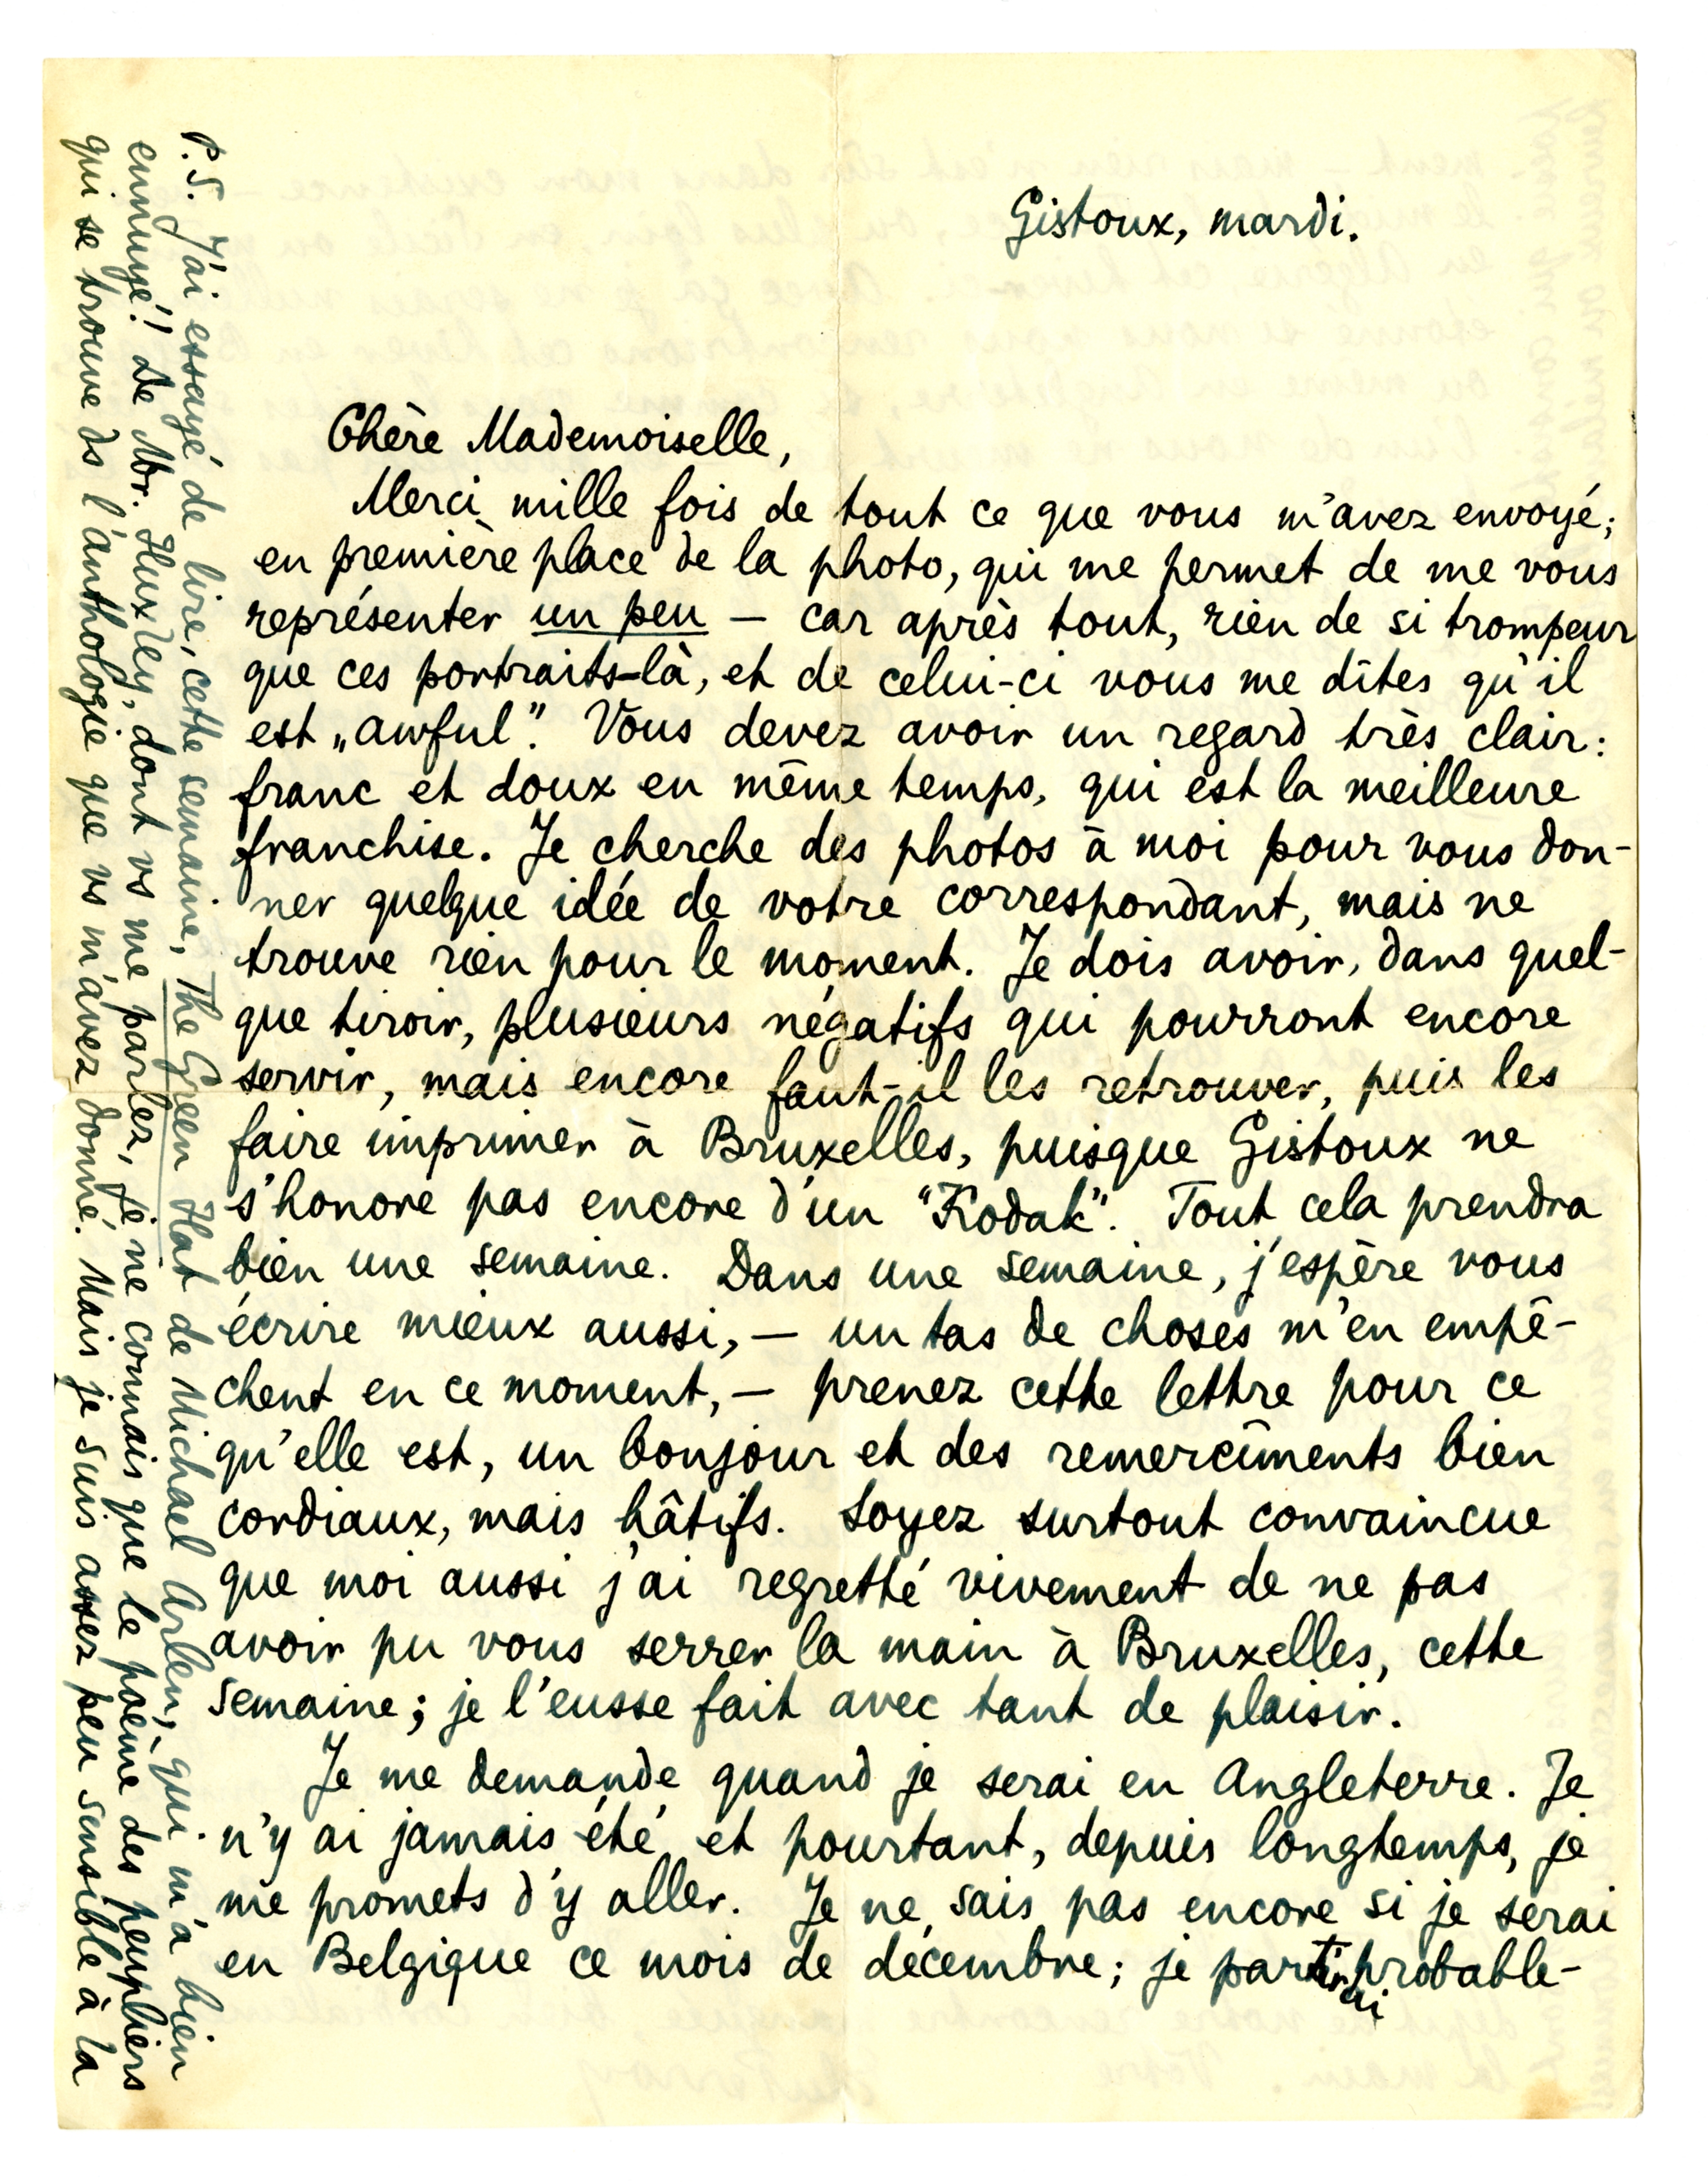 Gistoux, mardi.
Chère Mademoiselle,
Merci mille fois de tout ce que vous m'avez envoyé;
en première place de la photo, qui me permet de me vous
représenter un peu — car après tout, rien de si trompeur
que ces portraits-là, et de celui-ci vous me dites qu'il
est „awful". Vous devez avoir un regard très clair:
franc et doux en même temps, qui est la meilleure
franchise. Je cherche des photos à moi pour vous don-
ner quelque idée de votre correspondant, mais ne
trouve rien pour le moment. Je dois avoir, dans quel-
que tiroir, plusieurs négatifs qui pourront encore
servir, mais encore faut-il les retrouver, puis les
faire imprimer à Bruxelles, puisque Gistoux ne
s'honore pas encore d'un "Kodak". Tout cela prendra
bien une semaine. Dans une semaine, j'espère vous
écrire mieux aussi, — un tas de choses m'en empê-
chent en ce moment, — prenez cette lettre pour ce
qu'elle est, un bonjour et des remercîments bien
cordiaux, mais hâtifs. Soyez surtout convaincue
que moi aussi j'ai regretté vivement de ne pas
avoir pu vous serrer la main à Bruxelles, cette
semaine; je l'eusse fait avec tant de plaisir.
Je me demande quand je serai en Angleterre. Je
n'y ai jamais été et pourtant, depuis longtemps, je
me promets d'y aller. Je ne sais pas encore si je serai
en Belgique ce mois de décembre; je partirai probable-
P.S. J'ai essayé de lire, cette semaine, The Green Hat de Michael Arlen, qui m'a bien
ennuyé! De Mr. Huxley, dont vs me parlez, je ne connais que le poème des peupliers
qui se trouve ds l'anthologie que vs m'avez donné. Mais je suis assez peu sensible à la